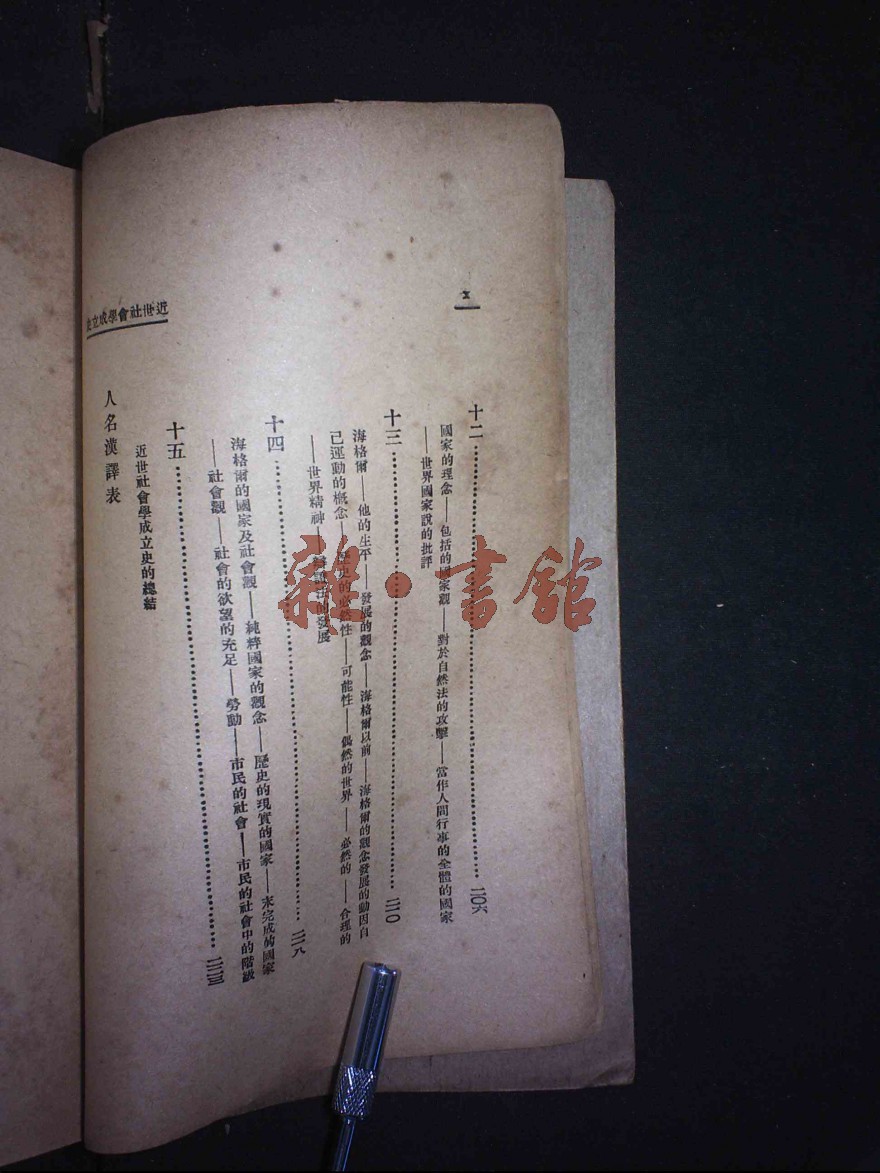 近世社會學成立史
十二……二〇六
國家的理念——包括的國家觀——對於自然法的攻擊——當作人間行事的全體的國家
——世界國家說的批評
十三……二一〇
海格爾——他的生平——發展的觀念——海格爾以前——海格爾的觀念發展的動因自
己運動的概念——歷史的必然性——可能性——偶然的世界——必然的——合理的
——世界精神——辯證法的發展
十四……二一八
海格爾的國家及社會觀——純粹國家的觀念——歷史的現實的國家——未完成的國家
——社會觀——社會的欲望的充足——勞動——市民的社會——市民的社會中的階級
十五……二二三
近世社會學成立史的總結
人名漢譯表
雜·書館